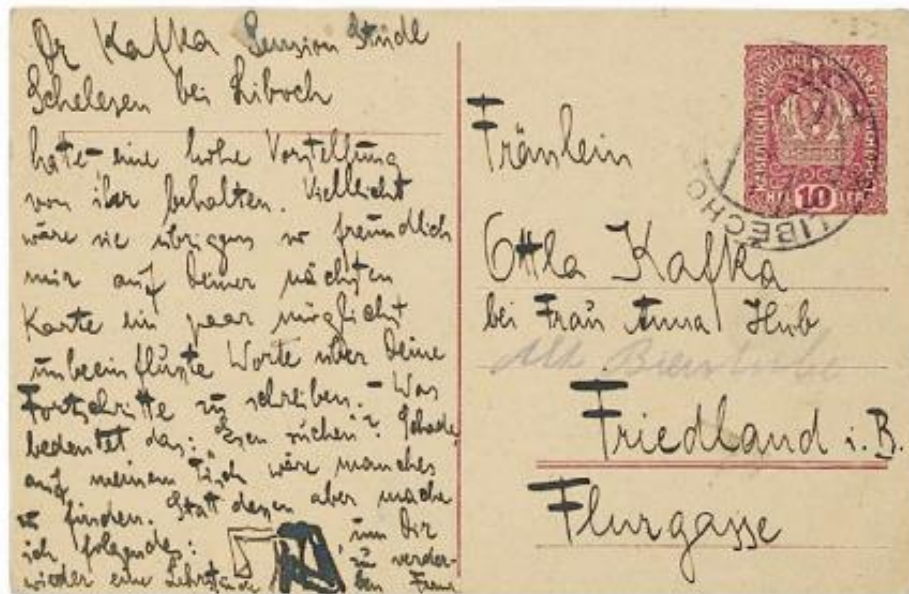 Dr Kafka Pension Stüdl
Schelesen bei Liboch
hatte eine hohe Vorstellung
von ihr behalten. Vielleicht
wäre sie übrigens so freundlich
mir auf Deiner nächsten
Karte ein paar möglichst
unbeeinflußte Worte über Deine
Fortschritte zu schreiben. - Was
bedeutet das: "Essen suchen"? Schade
auf meinem Tisch wäre manches
zu finden. Statt dessen aber mache
ich folgendes: um Dir
wieder eine Lehrstunde zu verder-
ben Franz
Fräulein
Ottla Kafka
bei Frau Anna Hub
Friedland i. B.
Flurgasse
10
LIBECHO